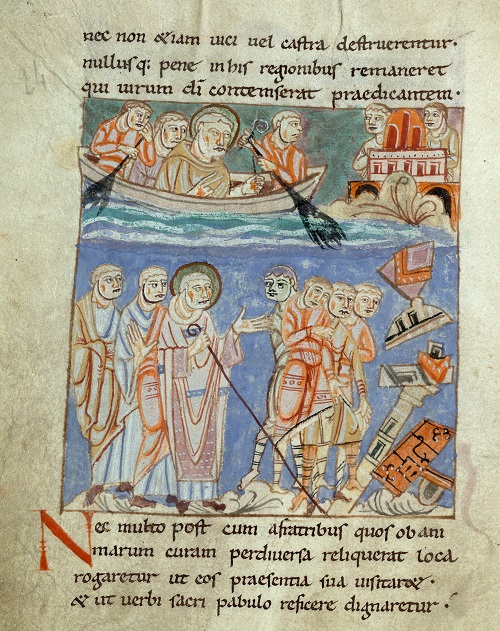 nec non & iam uici uel castra destruerentur·
nullusq; pene in his regionibus remaneret
qui uirum dī contemserat praedicantem·
Nec multo post cum afratribus quos ob ani
marum curam perdiuersa reliquerat loca
rogaretur ut eos praesentia sua uisitar&·
& ut uerbi sacri pabulo reficere dignaretur·